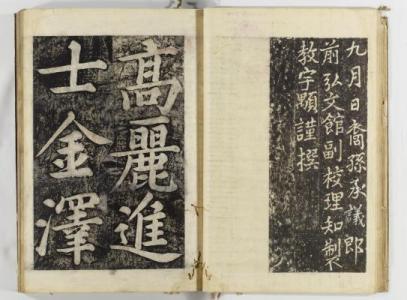 九月日裔孫承議郎
前弘文館副校理知製
教宇顯謹撰
高麗進
士金澤